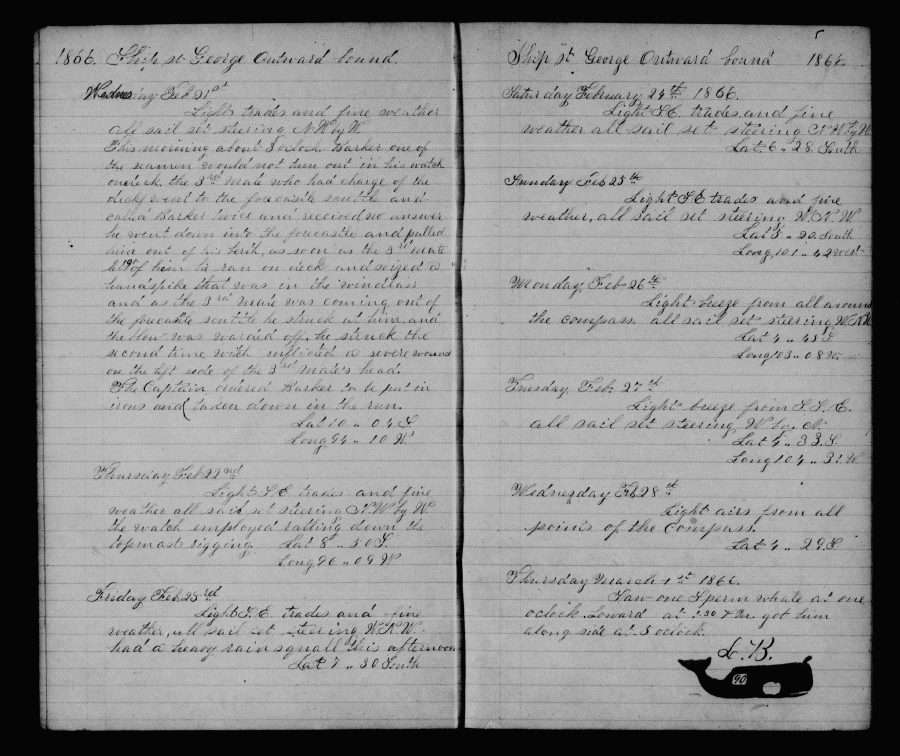 1866. Ship St George Outward bound.
Wednesday Feb 21st
Light trades and fine weather
all sail set steering N.W by W.
This morning about 3 oclock. Barker one of
the seamen would not turn out in his watch
on deck. the 3rd Mate who had charge of the
deck went to the forecastle scuttle and
called Barker twice and received no answer
he went down into the forecastle and pulled
him out of his berth, as soon as the 3rd Mate
let go of him he ran on deck and seized a
handspike that was in the windlass
and as the 3rd Mate was coming out of
the forecastle scuttle he struck at him and
the blow was warded off, he struck the
second time with inflicted a severe wound
on the left side of the 3rd Mate's head.
The Captain ordered Barker to be put in
irons and taken down in the run.
Lat 10 .. 04 S
Long 94 .. 10 W
Thursday Feb 22nd
Light S.E. trades and fine
weather all sail set steering N.W by W.
the watch employed rattling down the
topmast rigging. Lat 8° .. 50 S.
Long 96 .. 09 W
Friday Feb 23rd
Light S.E. trades and fine
weather, all sail set steering W.N.W.
had a heavy rain squall this afternoon
Lat 7 .. 30 South
5
Ship St George Outward bound 1866.
Saturday February 24th 1866.
Light S.E. trades and fine
weather all sail set steering N.W by W
Lat 6 .. 28 South
Sunday Feb 25th
Light S.E trades and fine
weather, all sail set steering W.N.W
Lat 5 .. 20. South
Long 101 .. 42 West
Monday Feb 26th
Light breeze from all around
the compass. all sail set steering W.N.W
Lat 4 .. 45 S.
Long 103 .. 08 W.
Tuesday Feb. 27th
Light breeze from S.S.E.
all sail set steering W by. N.
Lat 4 .. 33. S.
Long 104 .. 31. W
Wednesday Feb 28th
Light airs from all
points of the compass.
Lat 4 .. 29. S
Thursday March 1st 1866.
Saw one Sperm whale at one
oclock. Loward at 1.30 P.M. got him
along side at 5 oclock.
L. B.
90